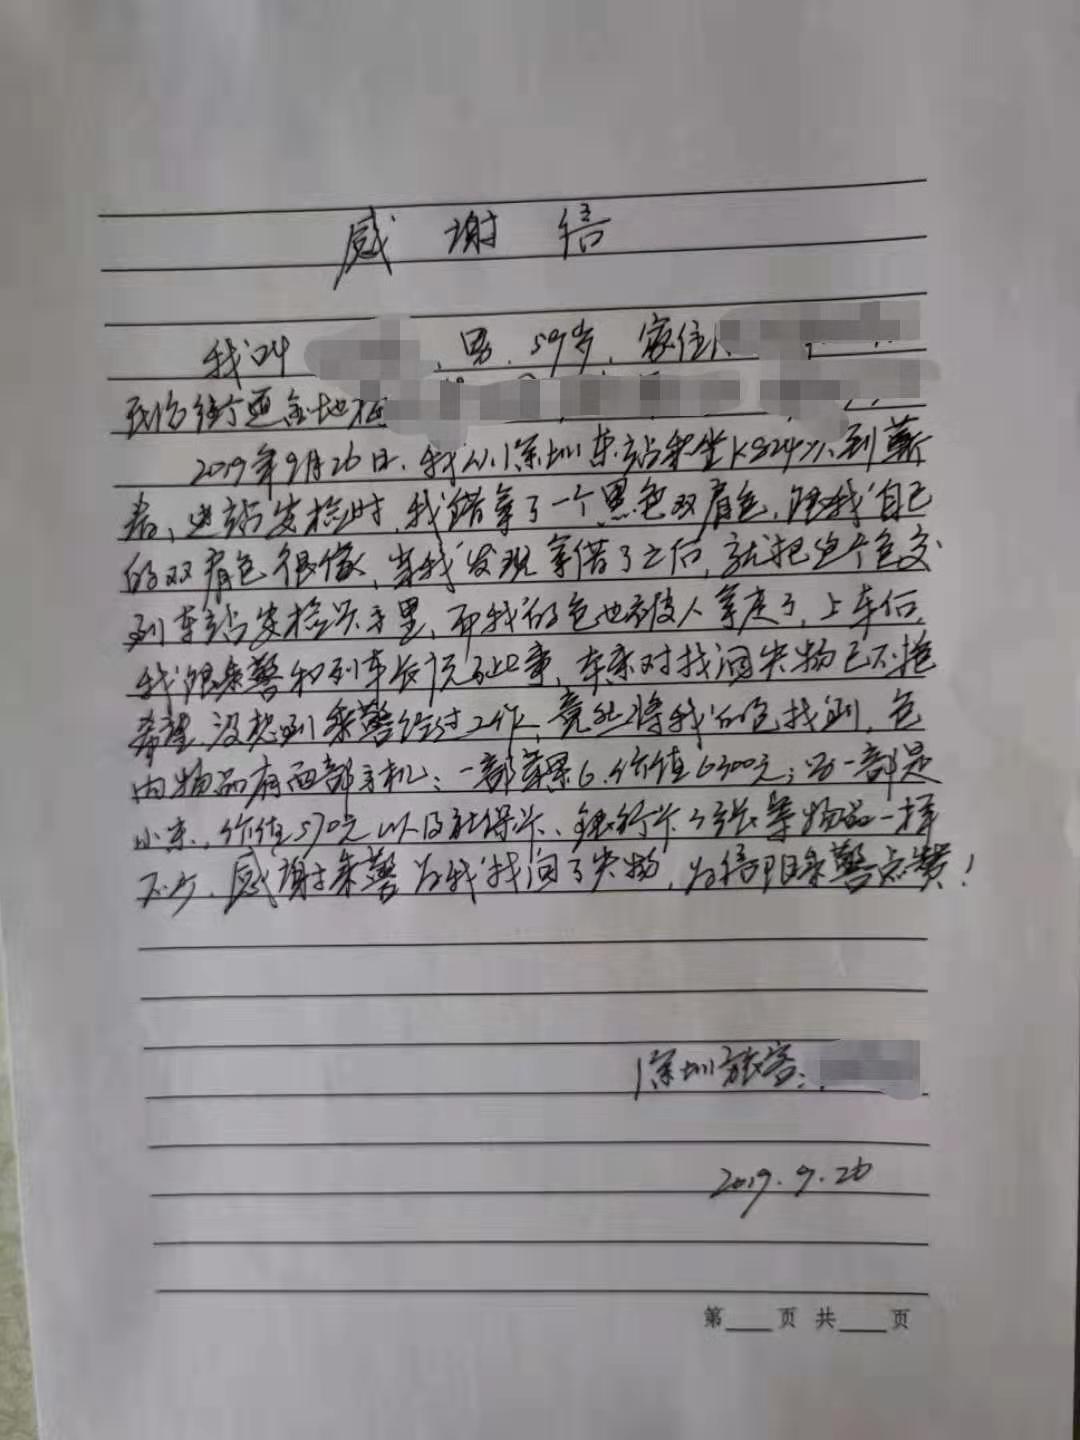 感谢信
我叫 ,男.59岁,家住
街道金地
2019年9月26日.我从深圳东站乘坐K824次到蕲
春,进站安检时,我错拿了一个黑色双肩包,跟我自己
的双肩包很像,当我发现拿错了之后,就把这个包交
到车站安检员手里,而我的包也被人拿走了,上车后,
我跟乘警和列车长反映此事,本来对找回失物已不抱
希望,没想到乘警经过工作,竟然将我的包找到,包
内物品有两部手机:一部苹果6.价值6300元;另一部是
小米,价值570元以及社保卡、银行卡3张等物品一样
不少,感谢乘警为我找回了失物,为信阳乘警点赞!
深圳旅客:
2019.9.26
第 页 共 页